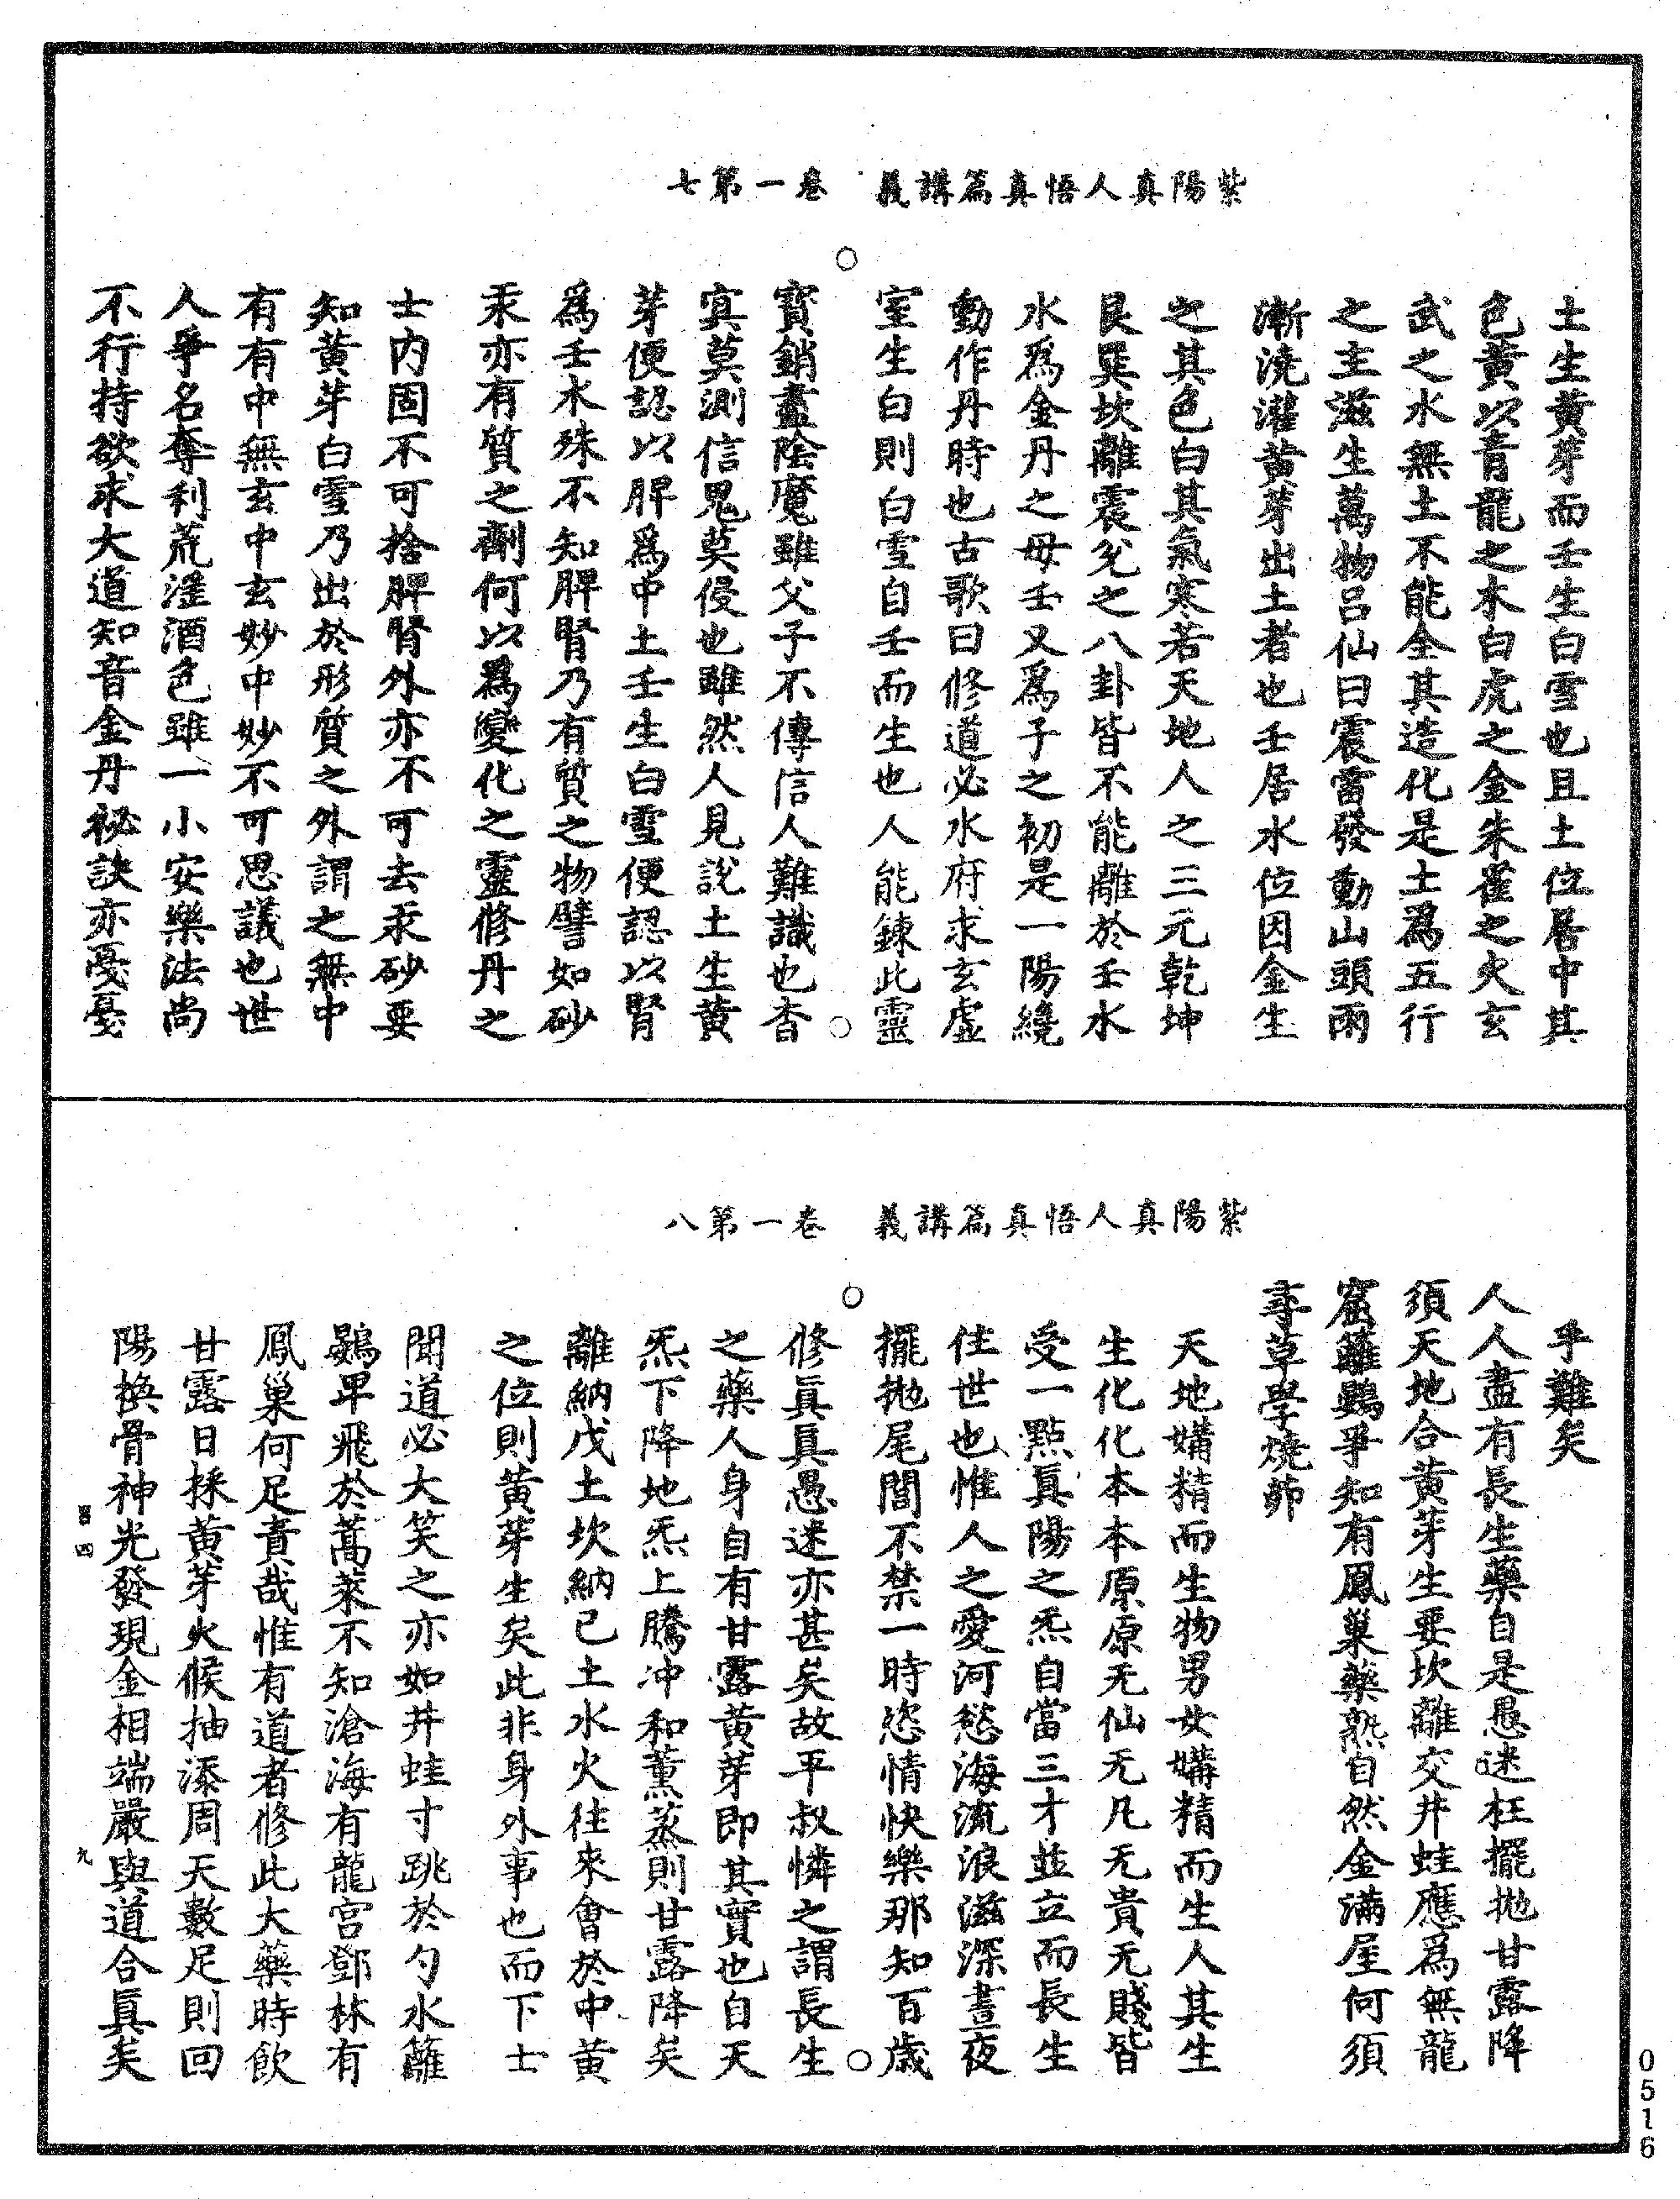 紫陽真人悟真篇講義　卷一第七
土生黃芽而壬生白雪也且土位居中其
色黃以青龍之木白虎之金朱雀之火玄
武之水無土不能全其造化是土爲五行
之主滋生萬物呂仙曰震雷發動山頭雨
漸澆灌黃芽出土者也壬居水位因金生
之其色白其氣寒若天地人之三元乾坤
艮巽坎離震兌之八卦皆不能離於壬水
水爲金丹之母壬又爲子之初是一陽纔
動作丹時也古歌曰修道必水府求玄虛
室生白則白雪自壬而生也人能鍊此靈
寳銷盡陰魔雖父子不傳信人難識也杳
㝠莫測信鬼莫侵也雖然人見說土生黃
芽便認以脾爲中土壬生白雪便認以腎
爲壬水殊不知脾腎乃有質之物譬如砂
汞亦有質之劑何以爲變化之靈修丹之
士内固不可捨脾腎外亦不可去汞砂要
知黃芽白雪乃出於形質之外謂之無中
有有中無玄中玄妙中妙不可思議也世
人爭名奪利荒滛酒色雖一小安樂法尚
不行持欲求大道知音金丹祕訣亦憂憂
紫陽真人悟真篇講義　卷一第八
乎難矣
人人盡有長生藥自是愚迷枉擺抛甘露降
須天地合黃芽生要坎離交井蛙應爲無龍
窟籬鷃爭知有鳳巢藥熟自然金滿屋何須
尋草學燒茆
天地媾精而生物男女媾精而生人其生
生化化本本原原无仙无凡无貴无賤皆
受一點眞陽之炁自當三才並立而長生
住世也惟人之愛河慾海流浪滋深晝夜
擺抛尾閭不禁一時恣情快樂那知百歲
修眞眞愚迷亦甚矣故平叔憐之謂長生
之藥人身自有甘露黃芽即其實也自天
炁下降地炁上騰冲和薰蒸則甘露降矣
離納戊土坎納已土水火往來會於中黃
之位則黃芽生矣此非身外事也而下士
聞道必大笑之亦如井蛙寸跳於勺水籬
鷃早飛於蒿萊不知滄海有龍宮鄧林有
鳳巢何足責哉惟有道者修此大藥時飲
甘露日採黃芽火候抽添周天數足則回
陽換骨神光發現金相端嚴與道合眞矣
九
0516